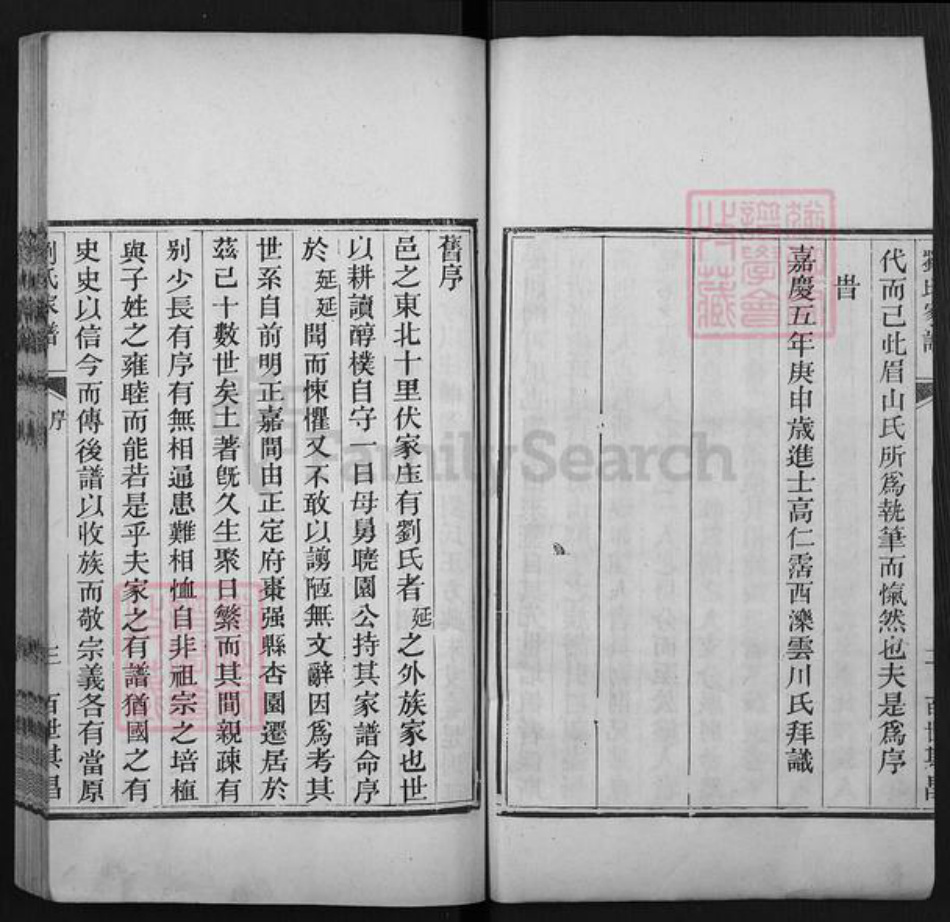 代而已此眉山氏所爲執筆而愾然也夫是爲序
旹
嘉慶五年庚申歲進士高仁霑西濼雲川氏拜識
舊序
邑之東北十里伏家庄有劉氏者延之外族家也世
以耕讀醇樸自守一日母舅曉園公持其家譜命序
於延延聞而悚懼又不敢以謭陋無文辭因爲考其
世系自前明正嘉間由正定府棗强縣杏園遷居於
茲己十數世矣土著旣久生聚日繁而其間親疎有
别少長有序有無相通患難相恤自非祖宗之培植
與子姓之雍睦而能若是乎夫家之有譜猶國之有
史史以信今而傳後譜以收族而敬宗義各有當原
劉氏家譜
序
三
百世其昌
FamilySearch